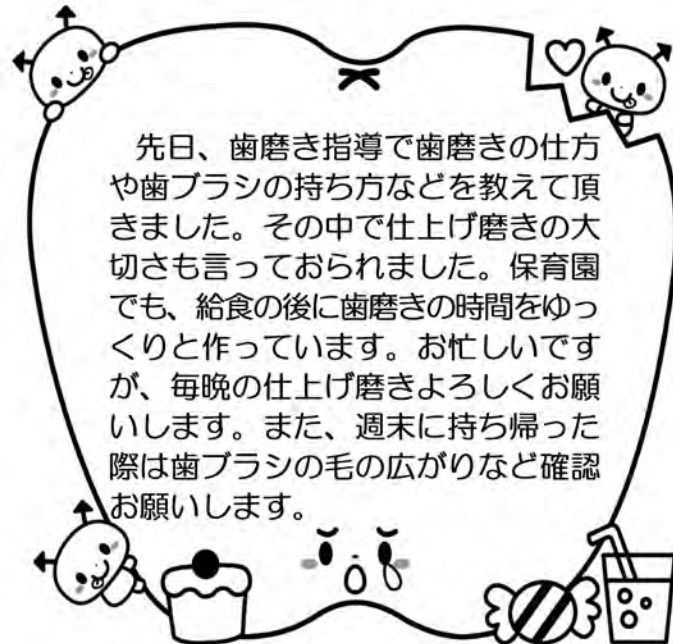 先日、歯磨き指導で歯磨きの仕方
や歯ブラシの持ち方などを教えて頂
きました。その中で仕上げ磨きの大
切さも言っておられました。保育園
でも、給食の後に歯磨きの時間をゆっ
くりと作っています。お忙しいです
が、毎晩の仕上げ磨きよろしくお願
いします。また、週末に持ち帰った
際は歯ブラシの毛の広がりなど確認
お願いします。